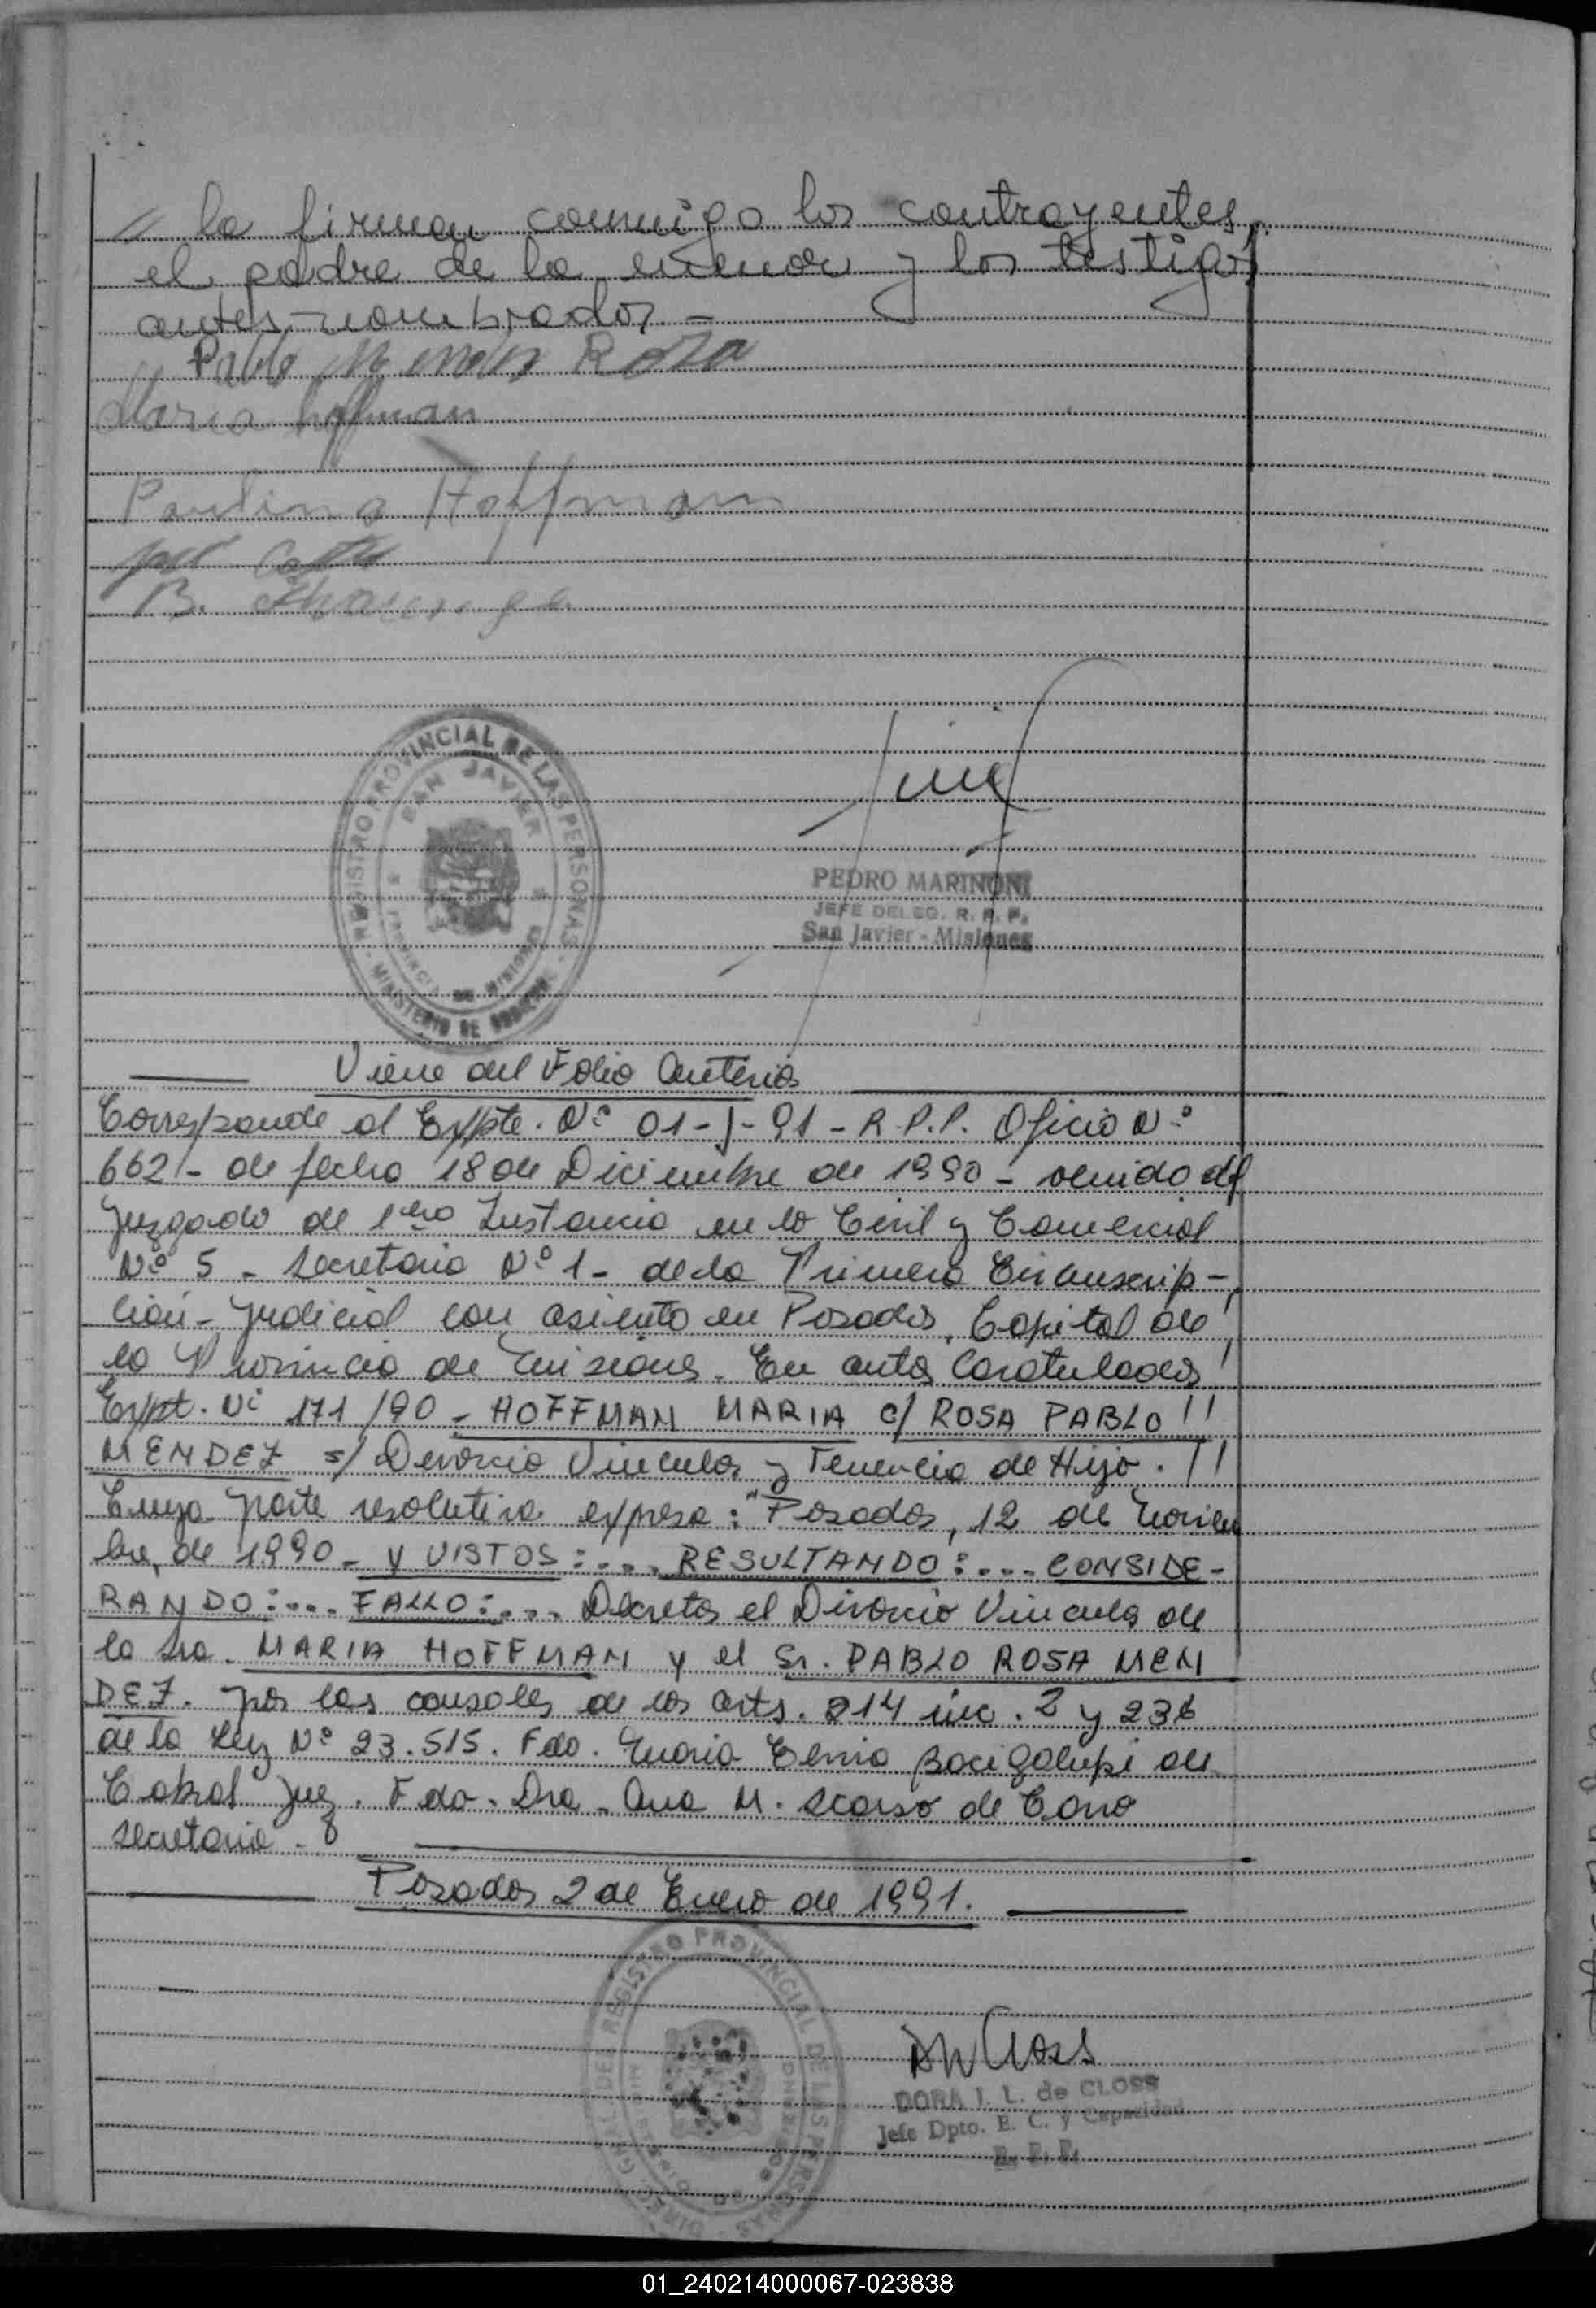 // la firman conmigo los contrayentes,
el padre de la menor y los testigos
antes nombrados.-
Pablo Mendes Rosa
Maria hoffman
Paulino Hoffmam
B.
REGISTRO PROVINCIAL DE LAS PERSONAS
SAN JAVIER
PROVINCIA DE MISIONES
MINISTERIO DE GOBIERNO
PEDRO MARINONI
JEFE DELEG. R. P. P.
San Javier - Misiones
Viene del Folio Anterior
Corresponde al Expte. Nº 01-J-91 - R.P.P. Oficio Nº
662/- de fecha 18 de Diciembre de 1990 - venido del
Juzgado de 1era Instancia en lo Civil y Comercial
Nº 5 - Secretaria Nº 1 - de la Primera Circunscrip-
ción - Judicial con asiento en Posadas, Capital de
la Provincia de Misiones. En autos Caratulados
Expt. Nº 171/90 - HOFFMAN MARIA c/ ROSA PABLO !!
MENDEZ s/ Divorcio Vincular y Tenencia de Hijo. !!
Cuya parte resolutiva expresa: "Posadas, 12 de Noviem
bre, de 1990 - Y VISTOS:.... RESULTANDO:.... CONSIDE-
RANDO:.... FALLO:.... Decretar el Divorcio Vincular de
la Sra. MARIA HOFFMAN y el Sr. PABLO ROSA MEN
DEZ. por las causales de los arts. 214 inc. 2 y 236
de la Ley Nº 23.515. Fdo. Maria Elena Bacigalupi de
Cabral Juez. Fdo. Dra. Ana M. Scarso de Cano
Secretaria.-
Posadas 2 de Enero de 1991.
DIREC. GRAL. DEL REGISTRO PROVINCIAL DE LAS PERSONAS
DORA I. L. de CLOSS
Jefe Dpto. E. C. y Capacidad
R. P. P.
01_240214000067-023838